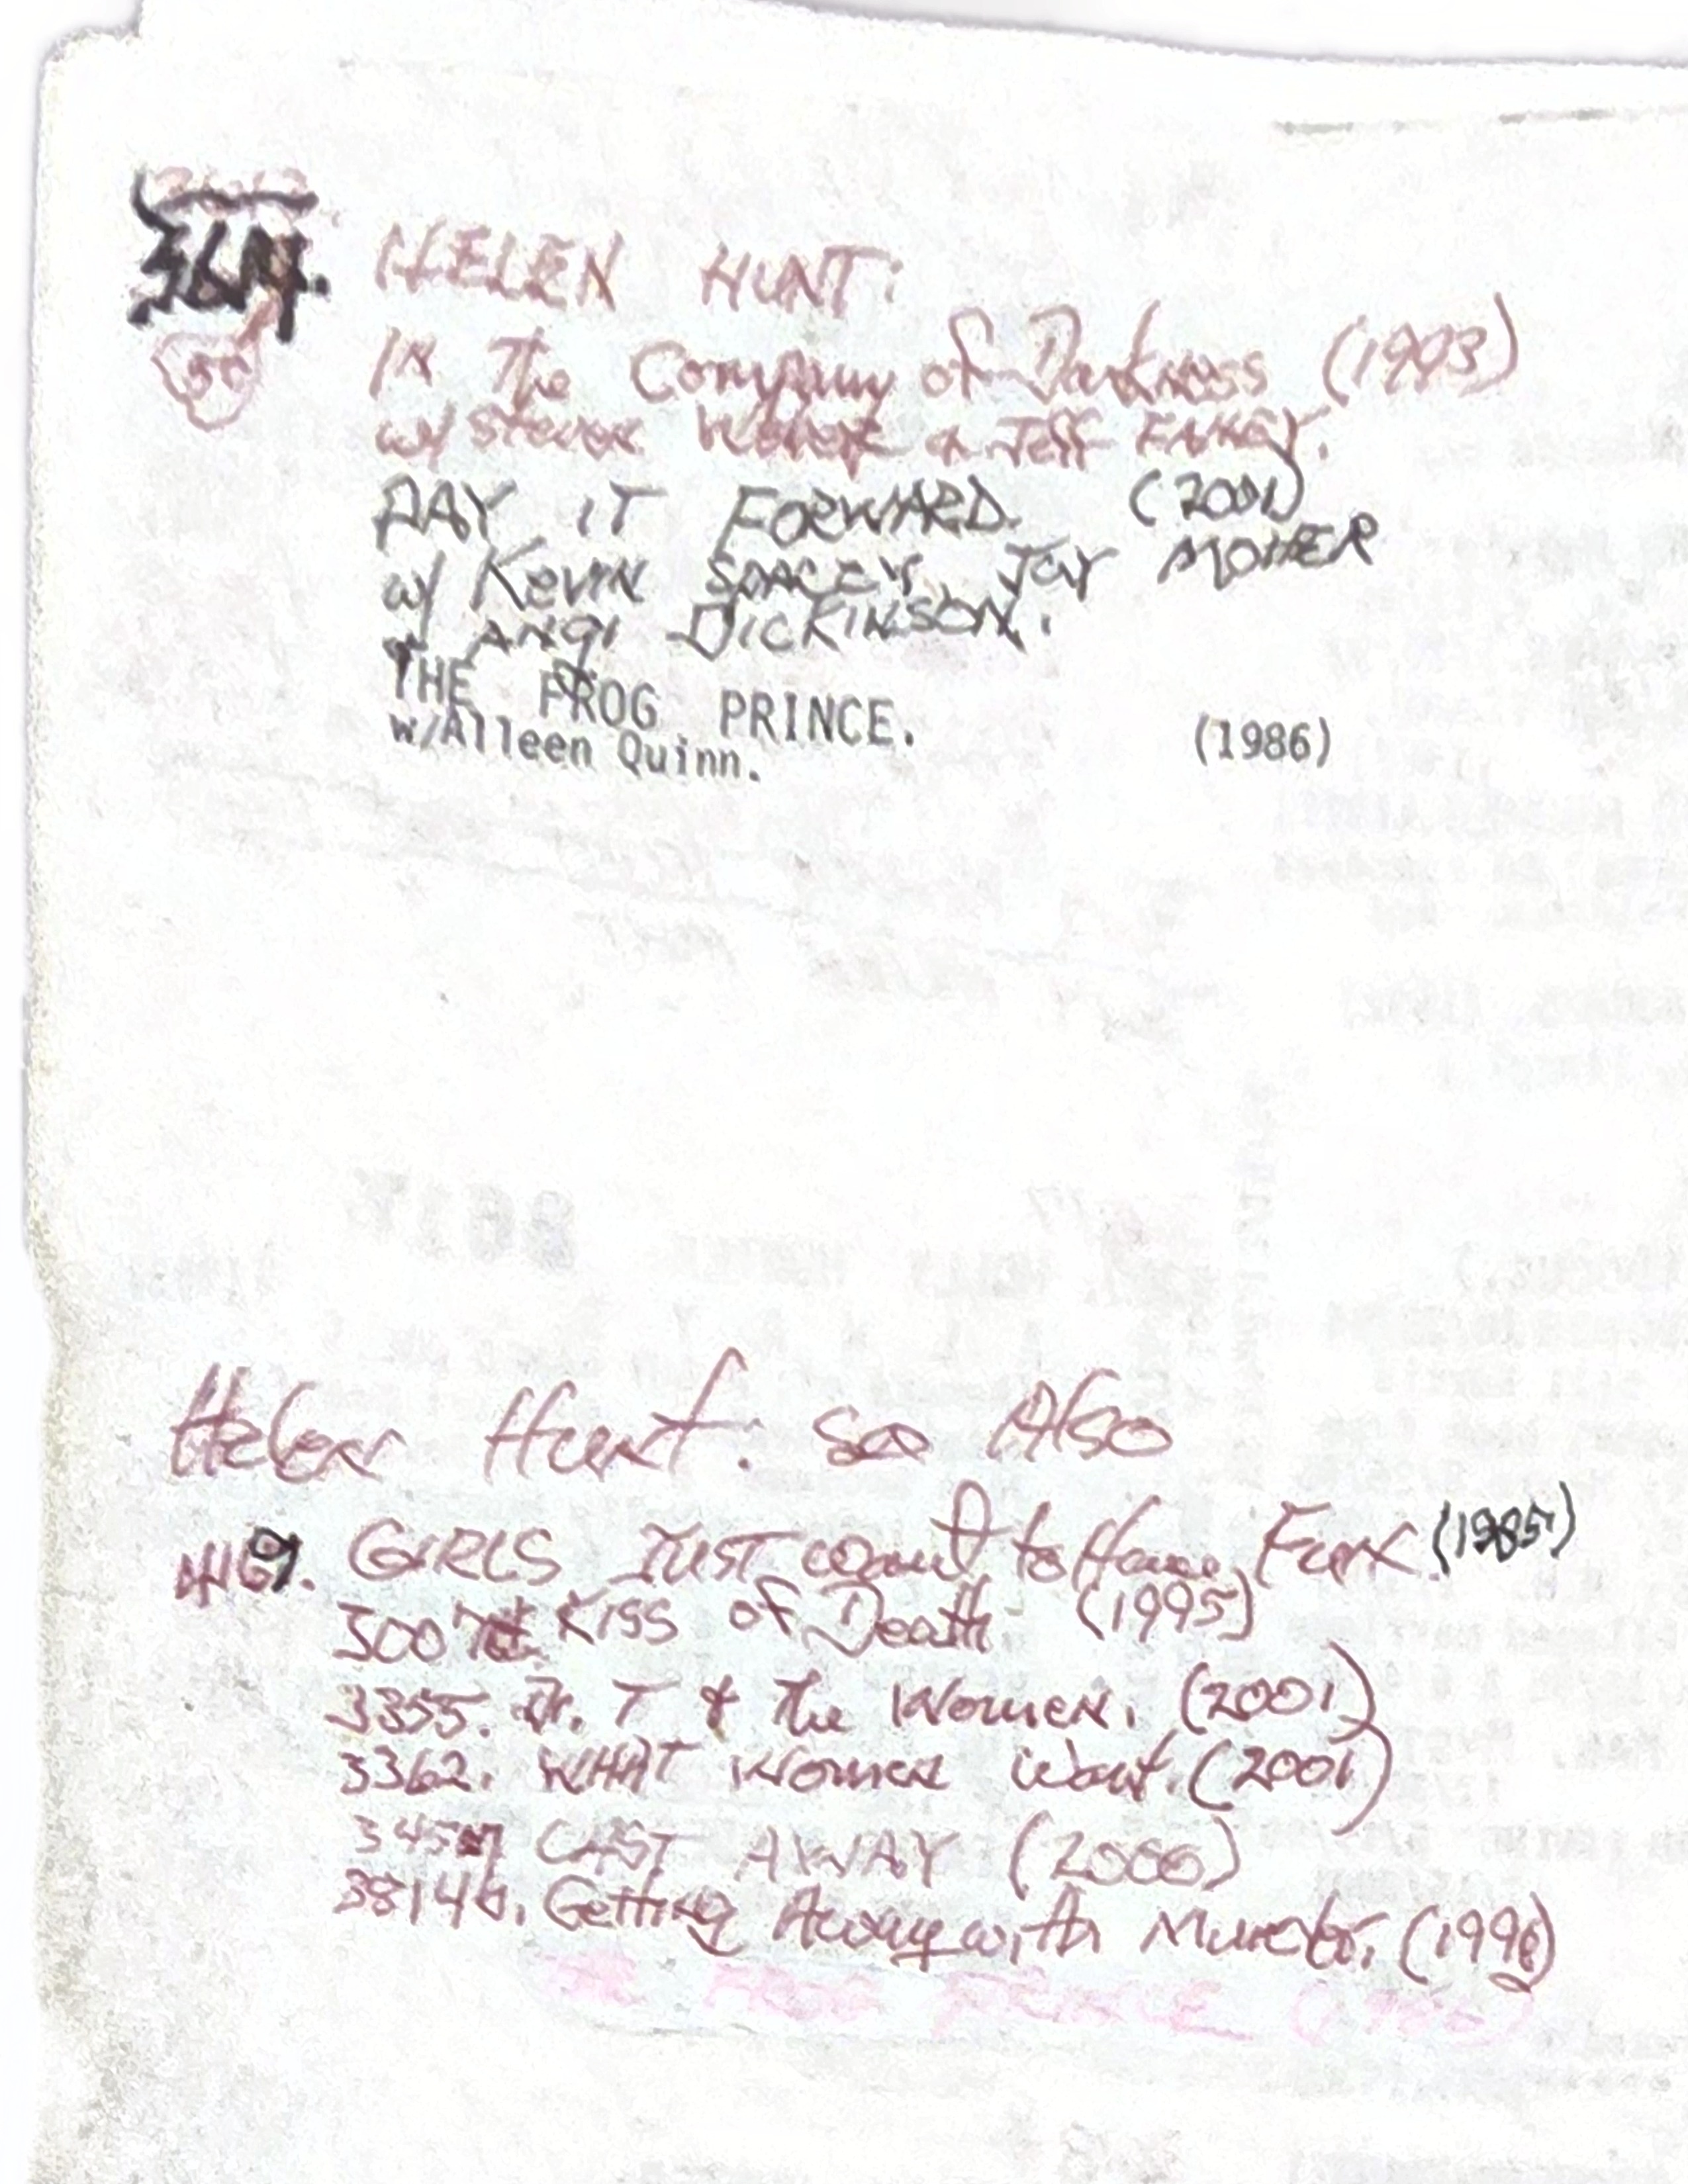 3614. HELEN HUNT:
IN The Company of Darkness (1993)
w/ Steven Weber & Jeff FAHEY.
PAY IT FORWARD. (2001)
w/ Kevin SPACEY, JAY MOHER
& ANGI DICKINSON.
THE FROG PRINCE.
w/Alleen Quinn. (1986)
Helen Hunt: see Also
GIRLS JUST want to Have Fun. (1985)
Kiss of Death (1995)
3355. Dr. T & the Women. (2001)
3362. WHAT Women Want. (2001)
CAST AWAY (2000)
3814b. Getting Away with Murder. (1996)
FROG PRINCE (1986)